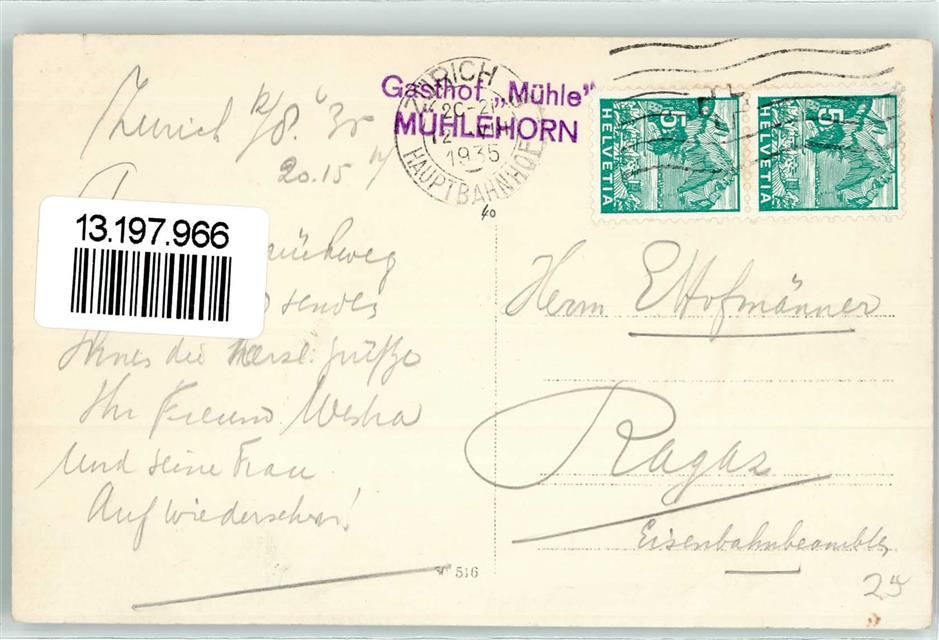 Zürich 12/8. 35
20.15
13.197.966
sendet
Ihnen die herzl. Grüße
Ihr Freund
und seine Frau
Auf Wiedersehen!
ZÜRICH
20-21
12
1935
HAUPTBAHNHOF
Gasthof „Mühle"
MÜHLEHORN
40
5
HELVETIA
5
HELVETIA
Herrn E. Hofmänner
Ragaz
Eisenbahnbeamter
516
25